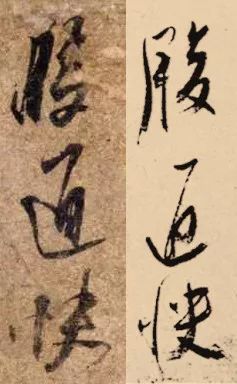 腹通快
腹通快